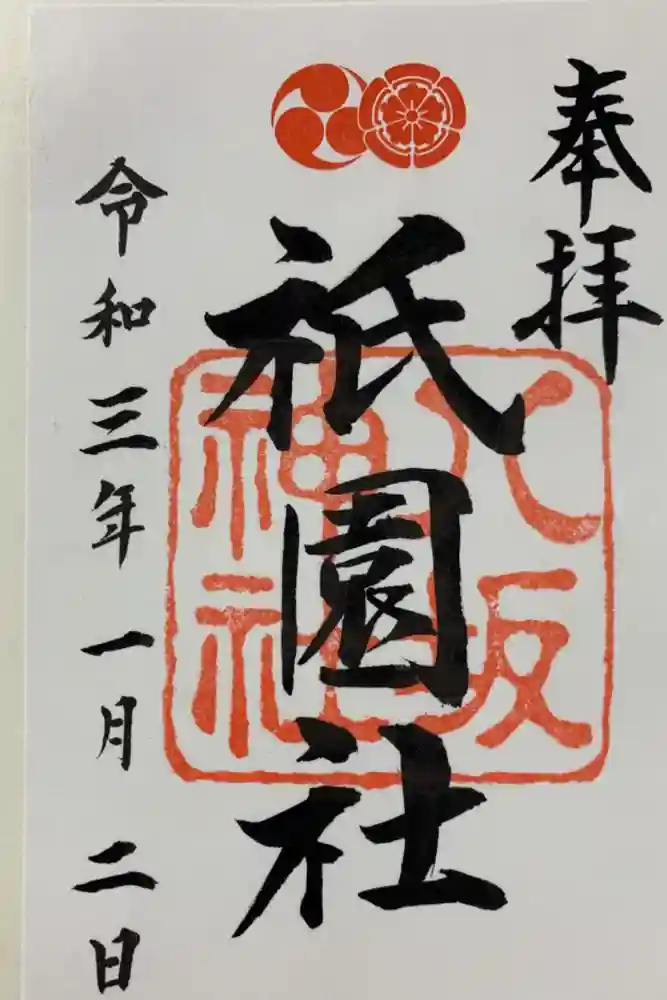 奉拝
祇園社
八坂
神社
令和三年一月二日